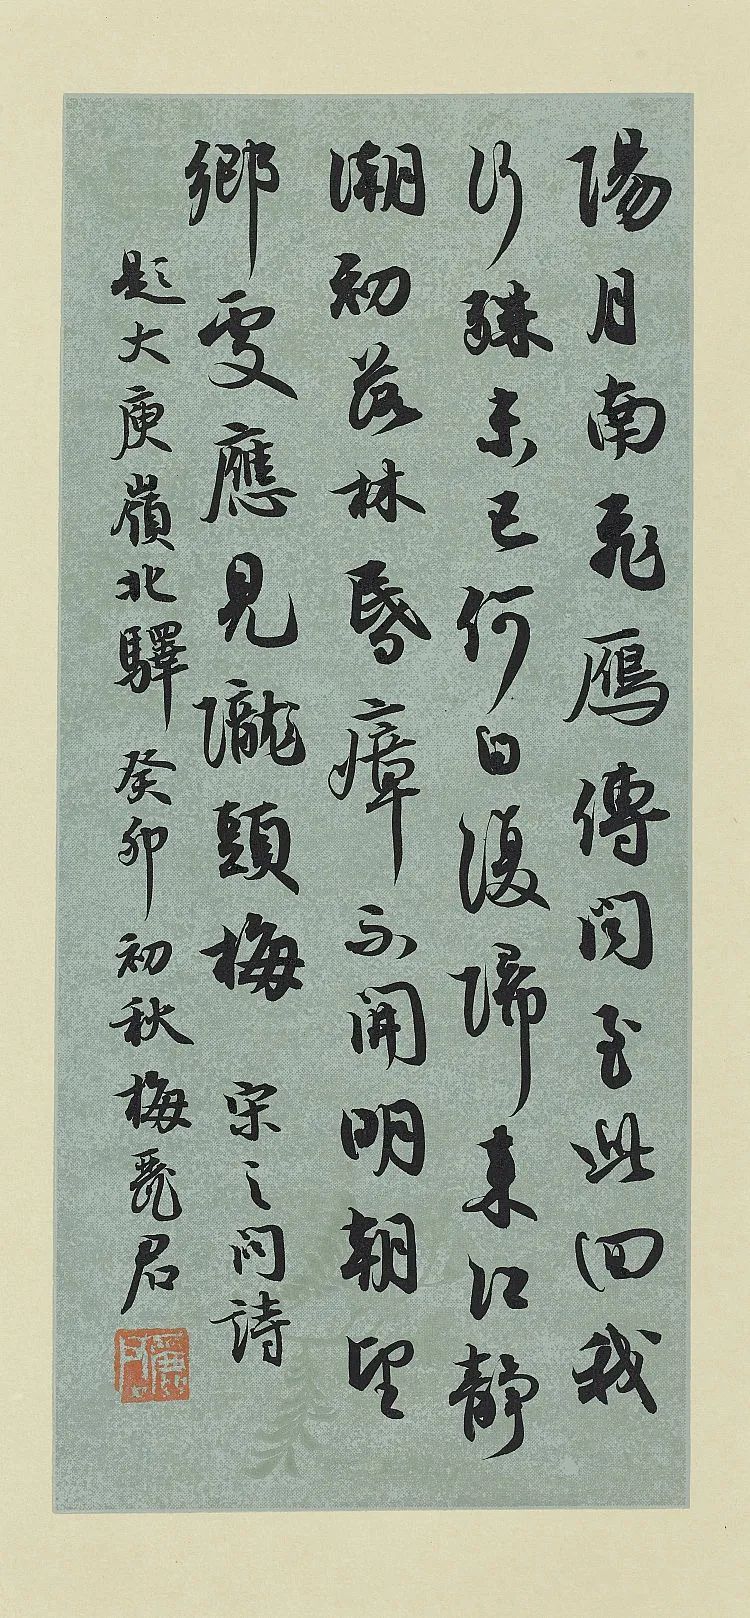 陽月南飛雁傳聞至此回我
行殊未已何日復歸來江靜
潮初落林昏瘴不開明朝望
鄉處應見隴頭梅 宋之問詩
題大庾嶺北驛 癸卯初秋梅麗君